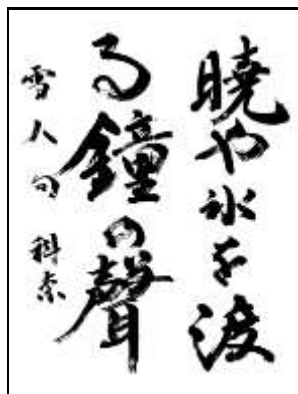 暁や氷を渡
る鐘の聲
雪人句 科京